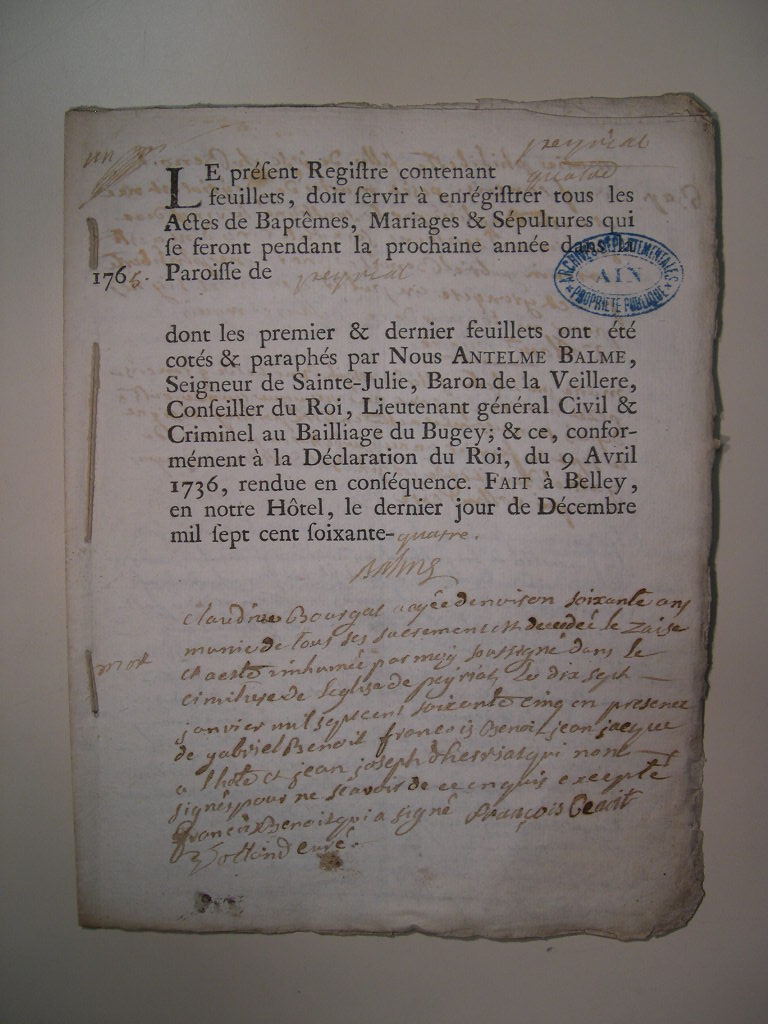 peyriat
quatre
LE préſent Regiſtre contenant
feuillets, doit ſervir à enrégiſtrer tous les
Actes de Baptêmes, Mariages & Sépultures qui
ſe feront pendant la prochaine année dans la
1765. Paroiſſe de peyriat
ARCHIVES DÉPARTEMENTALES
AIN
PROPRIÉTÉ PUBLIQUE
dont les premier & dernier feuillets ont été
cotés & paraphés par Nous ANTELME BALME,
Seigneur de Sainte-Julie, Baron de la Veillere,
Conſeiller du Roi, Lieutenant général Civil &
Criminel au Bailliage du Bugey; & ce, confor-
mément à la Déclaration du Roi, du 9 Avril
1736, rendue en conſéquence. FAIT à Belley,
en notre Hôtel, le dernier jour de Décembre
mil ſept cent ſoixante-quatre.
Balme
claudine Bourgat aagée denviron soixante ans
munie de tous ses sacrements est decedée le
mort
et a esté inhumée par moy soussigné dans le
cimitiere de l'eglise de peyriat, le dix sept
janvier mil sept cent soixante cinq en presence
de gabriel Benoit francois Benoit jean jacque
et jean joseph qui nont
signés pour ne scavoir de ce enquis excepté
francois Benoit qui a signé françois Benoit
curé.